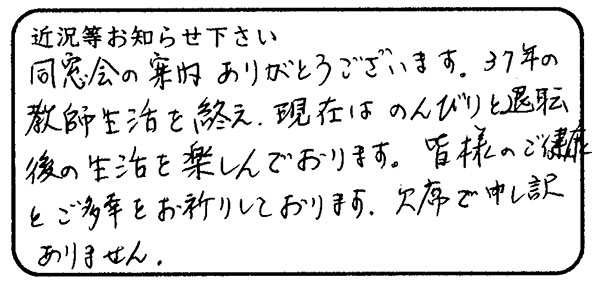 近況等お知らせ下さい
同窓会の案内ありがとうございます。37年の
教師生活を終え、現在はのんびりと退転
後の生活を楽しんでおります。皆様のご健康
とご多幸をお祈りしております。欠席で申し訳
ありません。